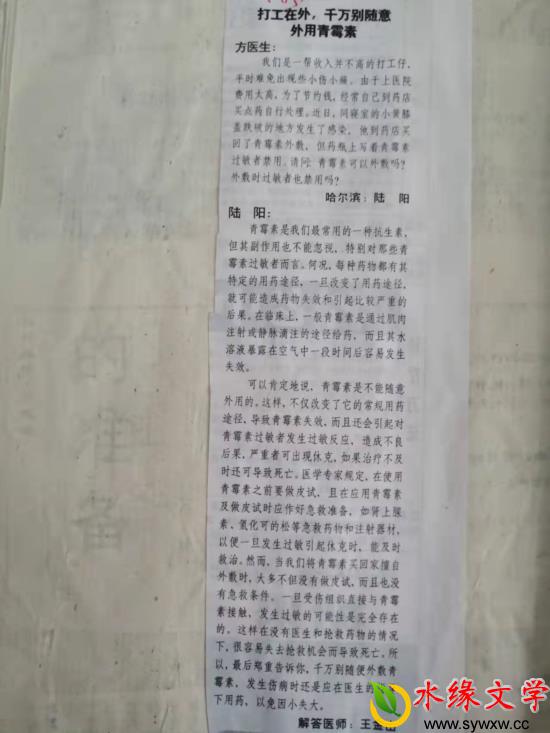 打工在外，千万别随意
外用青霉素
方医生：
我们是一帮收入并不高的打工仔，
平时难免出现些小伤小痛。由于上医院
费用太高，为了节约钱，经常自己到药店
买点药自行处理。近日，同寝室的小黄膝
盖跌破的地方发生了感染，他到药店买
回了青霉素外敷，但药瓶上写着青霉素
过敏者禁用。请问：青霉素可以外敷吗？
外敷时过敏者也禁用吗？
哈尔滨：陆 阳
陆 阳：
青霉素是我们最常用的一种抗生素，
但其副作用也不能忽视，特别对那些青
霉素过敏者而言。何况，每种药物都有其
特定的用药途径，一旦改变了用药途径，
就可能造成药物失效和引起比较严重的
后果。在临床上，一般青霉素是通过肌肉
注射或静脉滴注的途径给药，而且其水
溶液暴露在空气中一段时间后容易发生
失效。
可以肯定地说，青霉素是不能随意
外用的。这样，不仅改变了它的常规用药
途径，导致青霉素失效，而且还会引起对
青霉素过敏者发生过敏反应，造成不良
后果，严重者可出现休克，如果治疗不及
时还可导致死亡。医学专家规定，在使用
青霉素之前要做皮试，且在应用青霉素
及做皮试时应作好急救准备，如肾上腺
素、氢化可的松等急救药物和注射器材，
以便一旦发生过敏引起休克时，能及时
救治。然而，当我们将青霉素买回家擅自
外敷时，大多不但没有做皮试，而且也没
有急救条件。一旦受伤组织直接与青霉
素接触，发生过敏的可能性是完全存在
的。这样在没有医生和抢救药物的情况
下，很容易失去抢救机会而导致死亡。所
以，最后郑重告诉你，千万别随便外敷青
霉素，发生伤病时还是应在医生的
下用药，以免因小失大。
解答医师：王
水缘文学
www.sywxw.cc